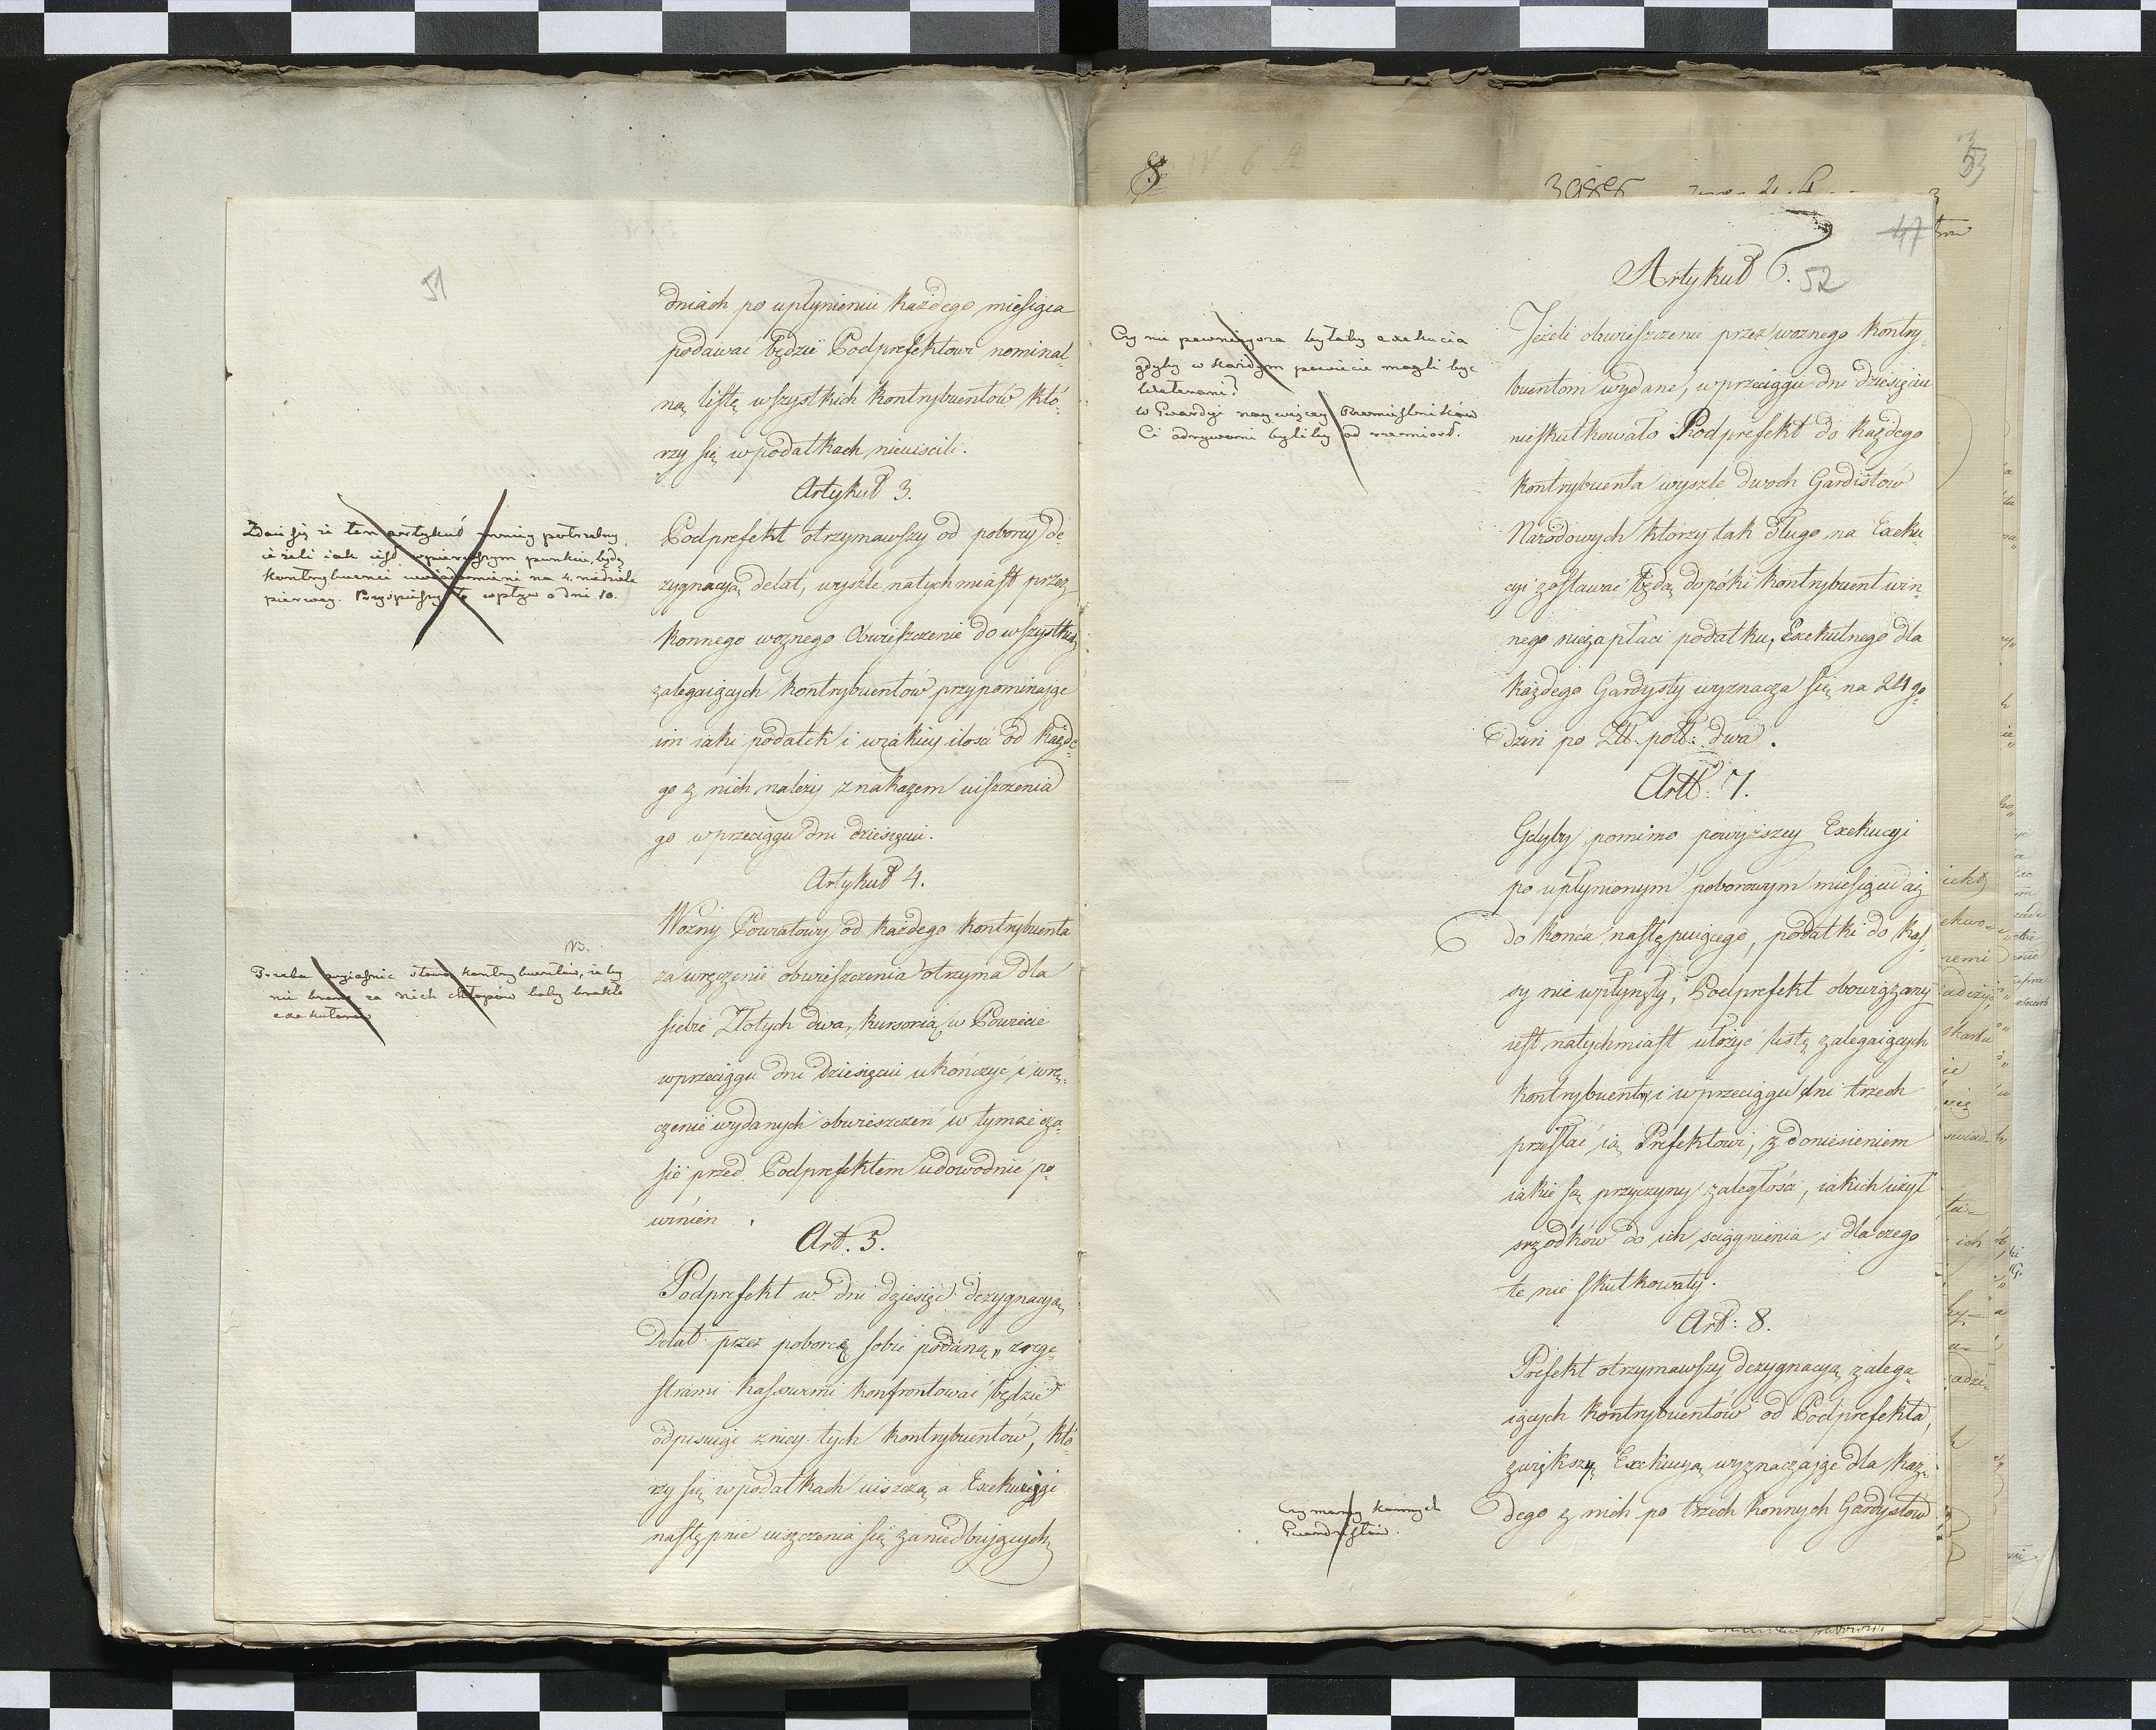 51
dniach po upłynieniu każdego miesiąca
podawać będzie Podprefektowi nominal-
ną listę wszystkich kontrybuentów któ-
rzy się w podatkach nieuiscili.
Artykuł 3.
Zdaie się że ten artykuł mniey potrzebny,
ieżeli iak iest w pierwszym punkcie, będą
kontrybuenci uwiadomieni na 4. niedziele
pierwey. Przyspieszy to wpływ o dni 10.
Podprefekt otrzymawszy od poborcy de-
zygnacyą delat, wyszle natychmiast przez
konnego woznego Obwieszczenie do wszystkich
zalegaiących kontrybuentów przypominaiąc
im iaki podatek i w iakiey ilosci od każde-
go z nich należy z nakazem uiszczenia
go w przeciągu dni dziesięciu.
Artykuł 4.
NB.
Trzeba wyiasnić słowo kontrybuentów, żeby
nie brano za nich chłopów boby brakło
exekutorów
Wozny Powiatowy od każdego kontrybuenta
za wręczenie obwieszczenia otrzyma dla
siebie Złotych dwa, kursorią w Powiecie
w przeciągu dni dziesięciu ukończyć i wrę-
czenie wydanych obwieszczeń w tymże cza-
sie przed Podprefektem udowodnić po-
winien.
Art. 5.
Podprefekt w dni dziesięć dezygnacyą
Delat przez poborcę sobie podaną, z rege-
strami kassowemi konfrontować będzie
odpisuiąc z niey tych kontrybuentów, któ-
rzy się w podatkach uiszczą a Exekucyi
następnie uiszczenia się zaniedbuiących
8
IV 6
3985
53
47
Artykuł 6.
52
Czy nie pewnieysza byłaby exekucia
gdyby w każdym powiecie mogli być
Weterani?
w Gwardyi naywięcey Rzemieslników
Ci odrywani byliby od rzemiosł.
Jeżeli obwieszczenie przez woznego kontry-
buentom wydane, w przeciągu dni dziesięciu
nieskutkowało Podprefekt do każdego
kontrybuenta wyszle dwoch Gardistów
Narodowych którzy tak długo na Exeku-
cyi zostawać będą dopóki kontrybuent win-
nego niezapłaci podatku, Exekutnego dla
każdego Gardysty wyznacza się na 24 go-
dzin po Zł. pol: dwa.
Artł: 7.
Gdyby pomimo powyższey Exekucyi
po upłynionym poborowym miesiącu aż
do końca następuiącego, podatki do Kas-
sy nie wpłynęły, Podprefekt obowiązany
iest natychmiast ułożyć listę zalegaiących
kontrybuentów i w przeciągu dni trzech
przesłać ią Prefektowi, z doniesieniem
iakie są przyczyny zaległości, iakich użył
srzodków do ich sciągnienia i dla czego
te nie skutkowały.
Art: 8.
Prefekt otrzymawszy dezygnacyą zalega-
iących kontrybuentów od Podprefekta,
zwiększy Exekucyą wyznaczaiąc dla każ-
dego z nich po trzech konnych Gardystów
Czy mamy konnych
Gwardystów.